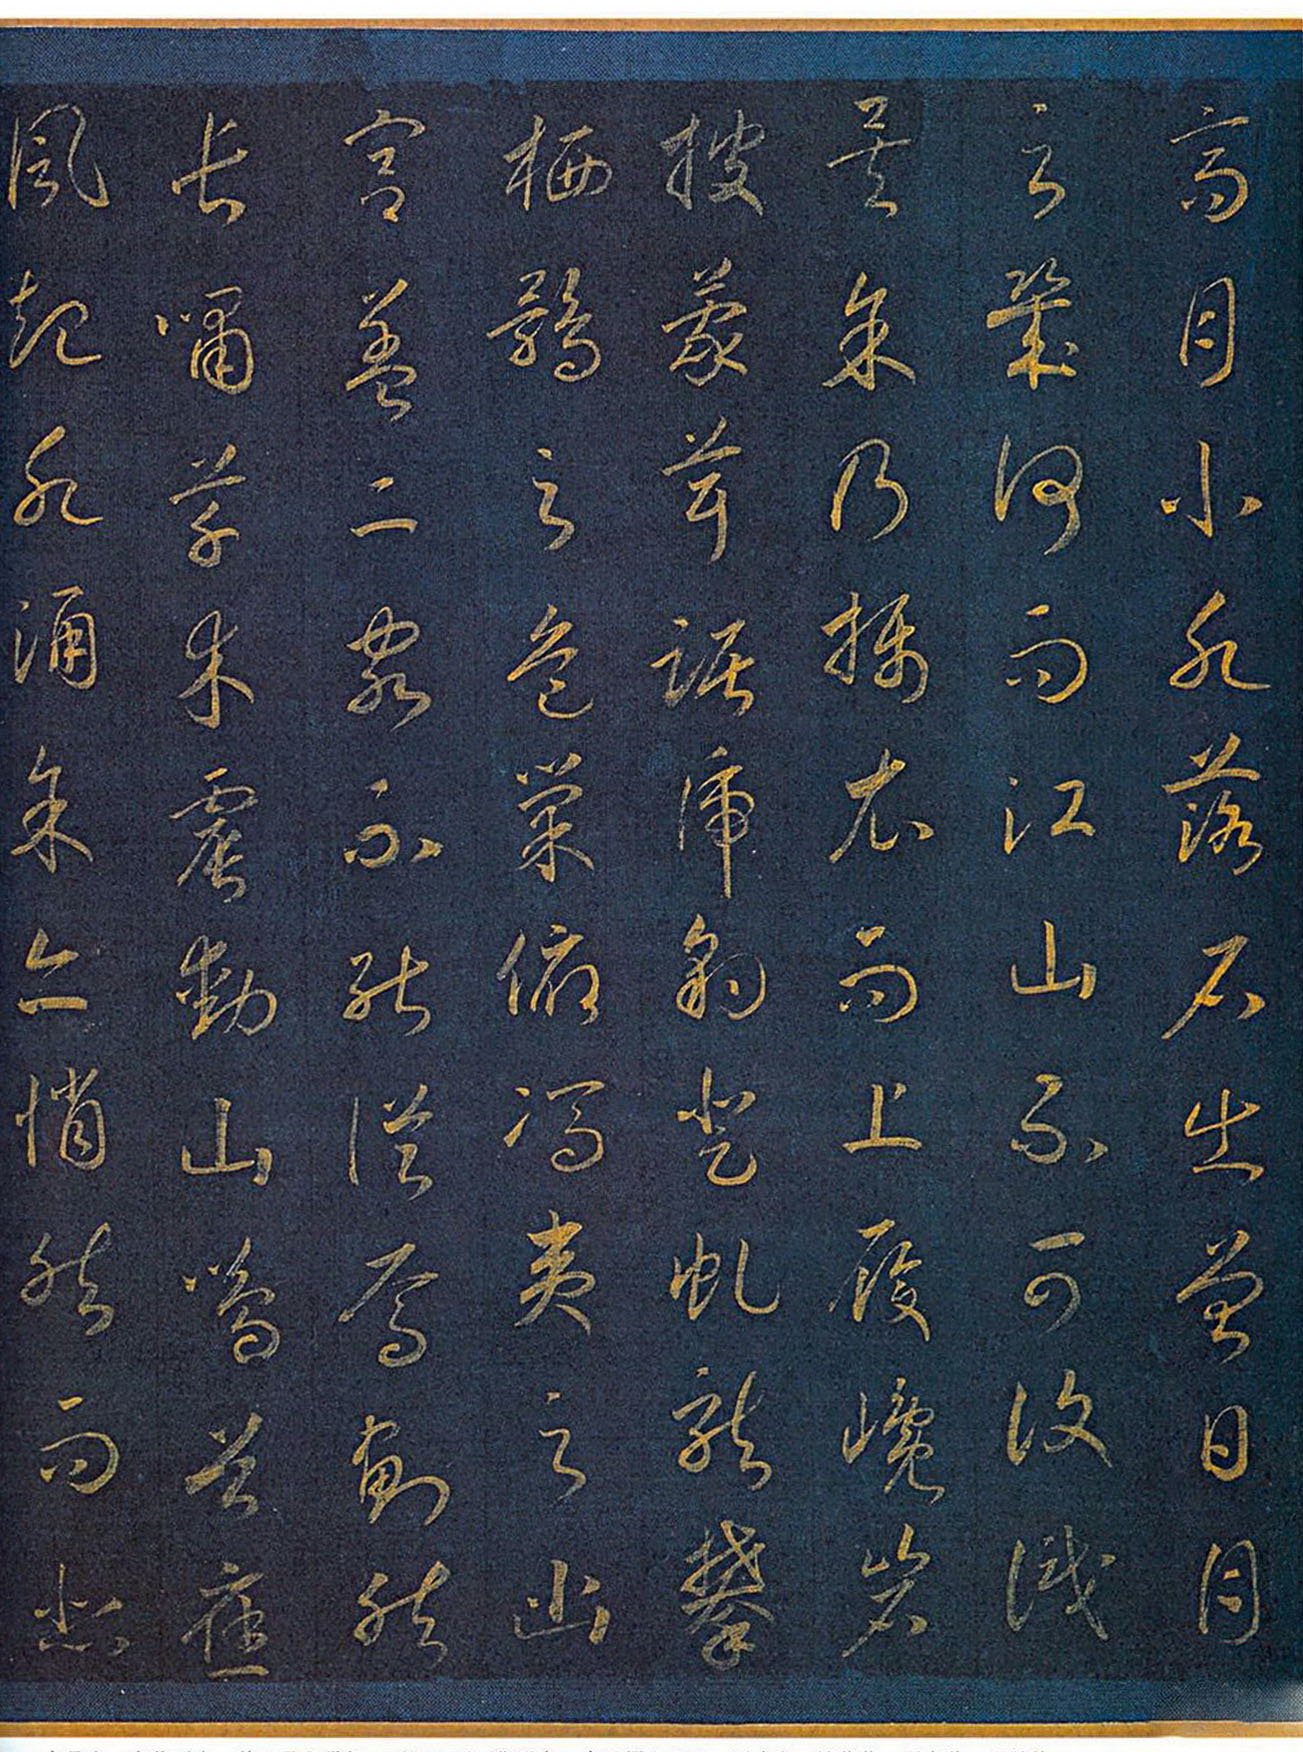 高月小水落石出曾日月
之幾何而江山不可復識
矣余乃攝衣而上履巉岩
披蒙茸踞虎豹登虬龍攀
栖鶻之危巢俯馮夷之幽
宮蓋二客不能從焉劃然
長嘯草木震動山鳴谷應
風起水涌余亦悄然而悲